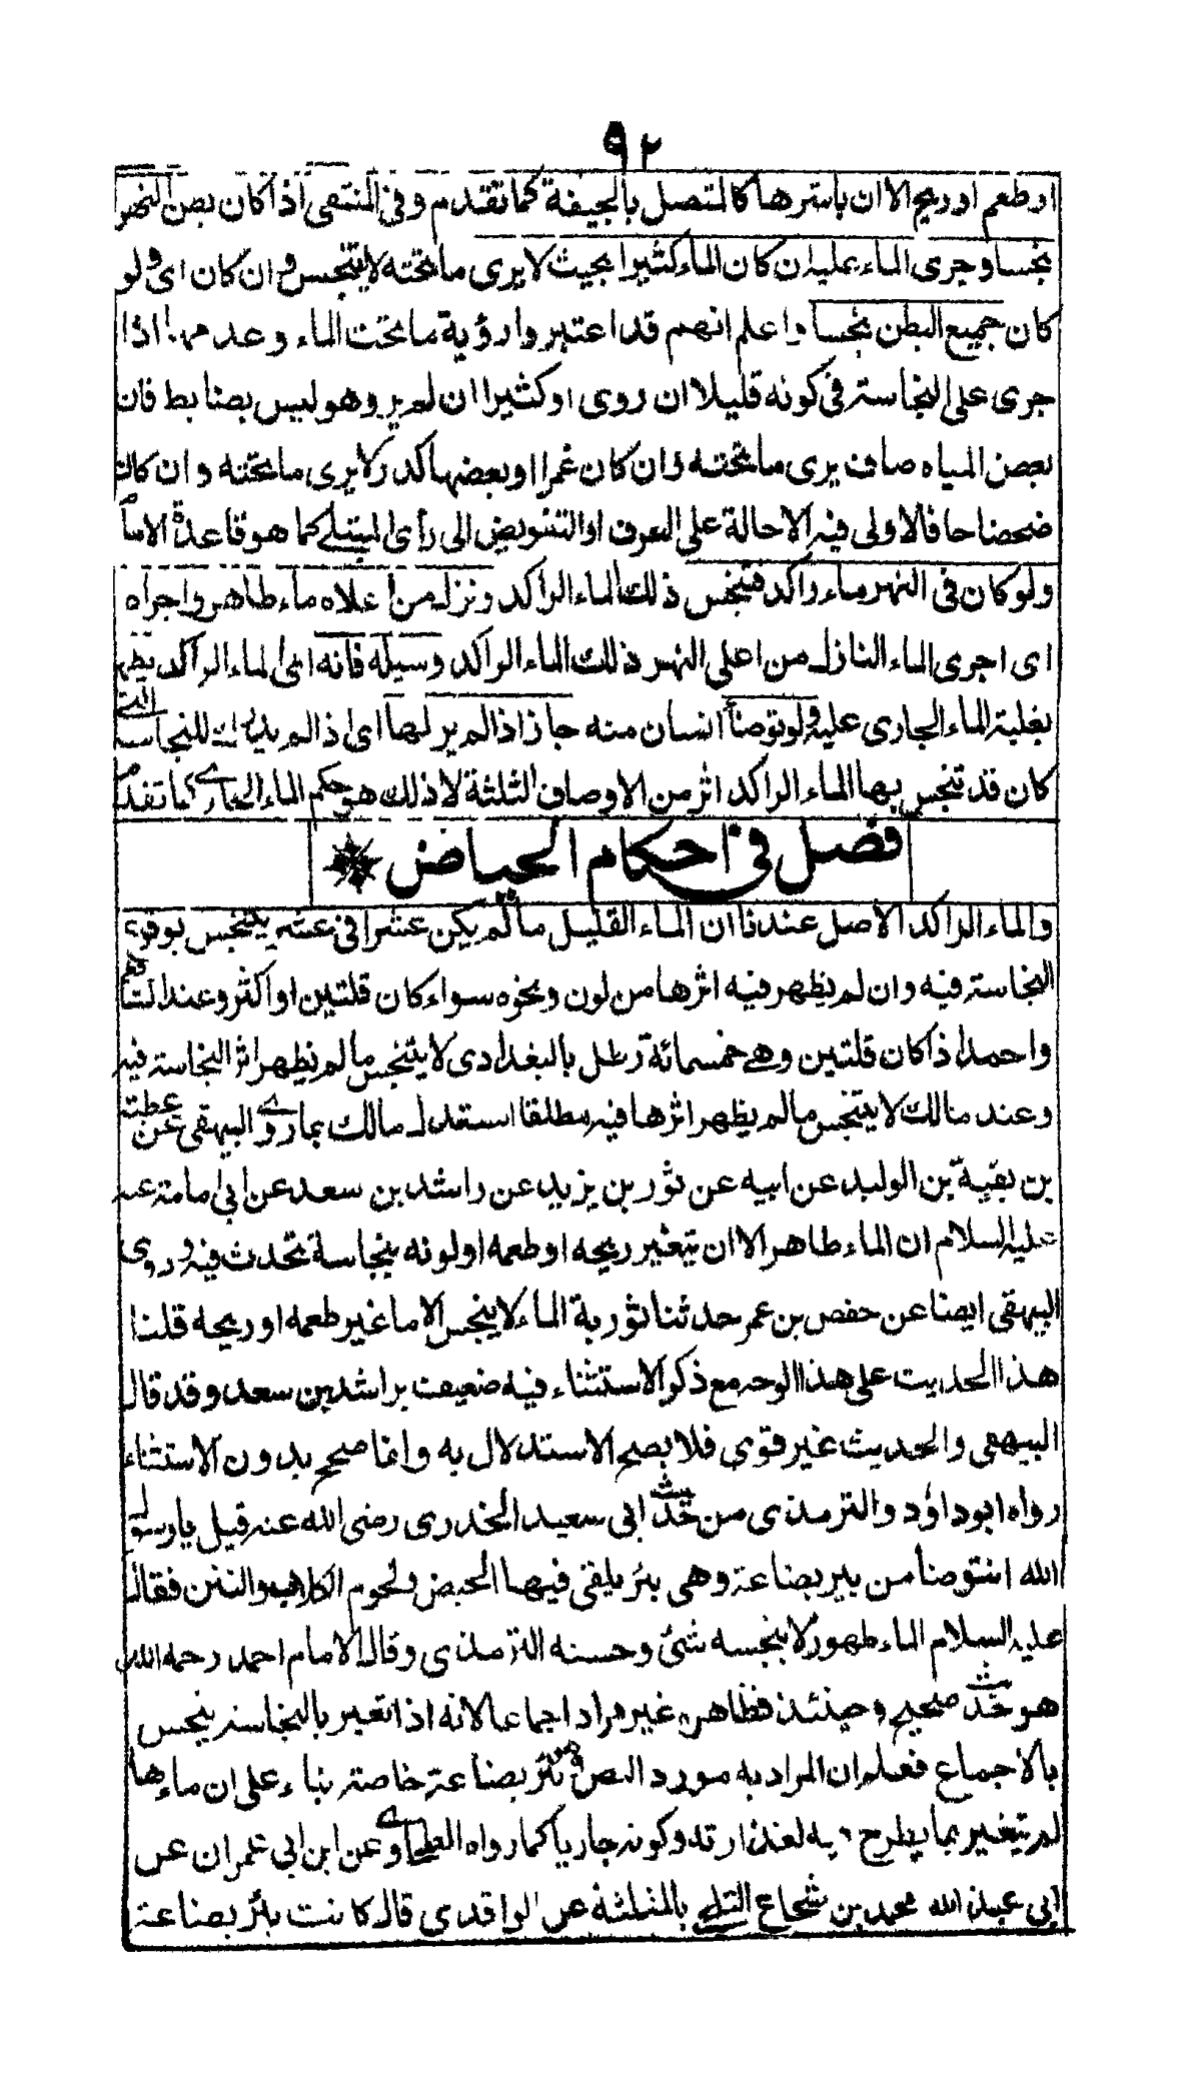 ٩٢
او طعم او ريح الا ان باشرها كالمتصل بالجيفة كما تقدم وفى المنتقى اذا كان بطن النهر
نجسا وجرى الماء عليه ان كان الماء كثيرا بحيث لا يرى ما تحته لا يتنجس وان كان اى ولو
كان جميع البطن نجسا واعلم انهم قد اعتبروا رؤية ما تحت الماء وعدمها اذا
جرى على النجاسة فى كونه قليلا ان روى او كثيرا ان لم ير وهو ليس بضابط فان
بعض المياه صاف يرى ما تحته وان كان غمرا وبعضها كدر لا يرى ما تحته وان كان
ضحضاحا فالاولى فيه الاحالة على العرف او التفويض الى رأى المبتلى كما هو قاعدة الامام
ولو كان فى النهر ماء راكد فتنجس ذلك الماء الراكد ونزل من اعلاه ماء طاهر واجراه
اى اجرى الماء النازل من اعلى النهر ذلك الماء الراكد وسيله فانه اى الماء الراكد يطهر
بغلبة الماء الجارى عليه ولو توضأ انسان منه جاز اذا لم ير لها اى اذا لم يدرك للنجاسة التى
كان قد تنجس بها الماء الراكد اثر من الاوصاف الثلثة لان ذلك هو حكم الماء الجارى كما تقدم
فصل فى احكام الحياض
والماء الراكد الاصل عندنا ان الماء القليل ما لم يكن عشرا فى عشر يتنجس بوقوع
النجاسة فيه وان لم يظهر فيه اثرها من لون ونحوه سواء كان قلتين او اكثر وعند الشافعى
واحمد اذا كان قلتين وهى خمسمائة رطل بالبغدادى لا يتنجس ما لم يظهر اثر النجاسة فيه
وعند مالك لا يتنجس ما لم يظهر اثرها فيه مطلقا استدل مالك بما روى البيهقى عن عطية
بن بقية بن الوليد عن ابيه عن ثور بن يزيد عن راشد بن سعد عن ابى امامة عنه
عليه السلام ان الماء طاهر الا ان يتغير ريحه او طعمه او لونه بنجاسة تحدث فيه وروى
البيهقى ايضا عن حفص بن عمر حدثنا ثور به الماء لا ينجس الا ما غير طعمه او ريحه قلنا
هذا الحديث على هذا الوجه مع ذكر الاستثناء فيه ضعيف براشد بن سعد وقد قال
البيهقى والحديث غير قوى فلا يصح الاستدلال به وانما صحح بدون الاستثناء
رواه ابو داؤد والترمذى من حديث ابى سعيد الخدرى رضى الله عنه قيل يا رسول
الله انتوضأ من بير بضاعة وهى بئر يلقى فيها الحيض ولحوم الكلاب والنتن فقال
عليه السلام الماء طهور لا ينجسه شئ وحسنه الترمذى وقال الامام احمد رحمه الله
هو حديث صحيح وحينئذ فظاهره غير مراد اجماعا لانه اذا تغير بالنجاسة ينجس
بالاجماع فعلم ان المراد به مورد النص وهو بئر بضاعة خاصة بناء على ان ماءها
لم يتغير بما يطرح فيه لغزارته وكونه جاريا كما رواه الطحاوى عن ابن ابى عمران عن
ابى عبد الله محمد بن شجاع الثلجى بالمثلثة عن الواقدى قال كانت بئر بضاعة